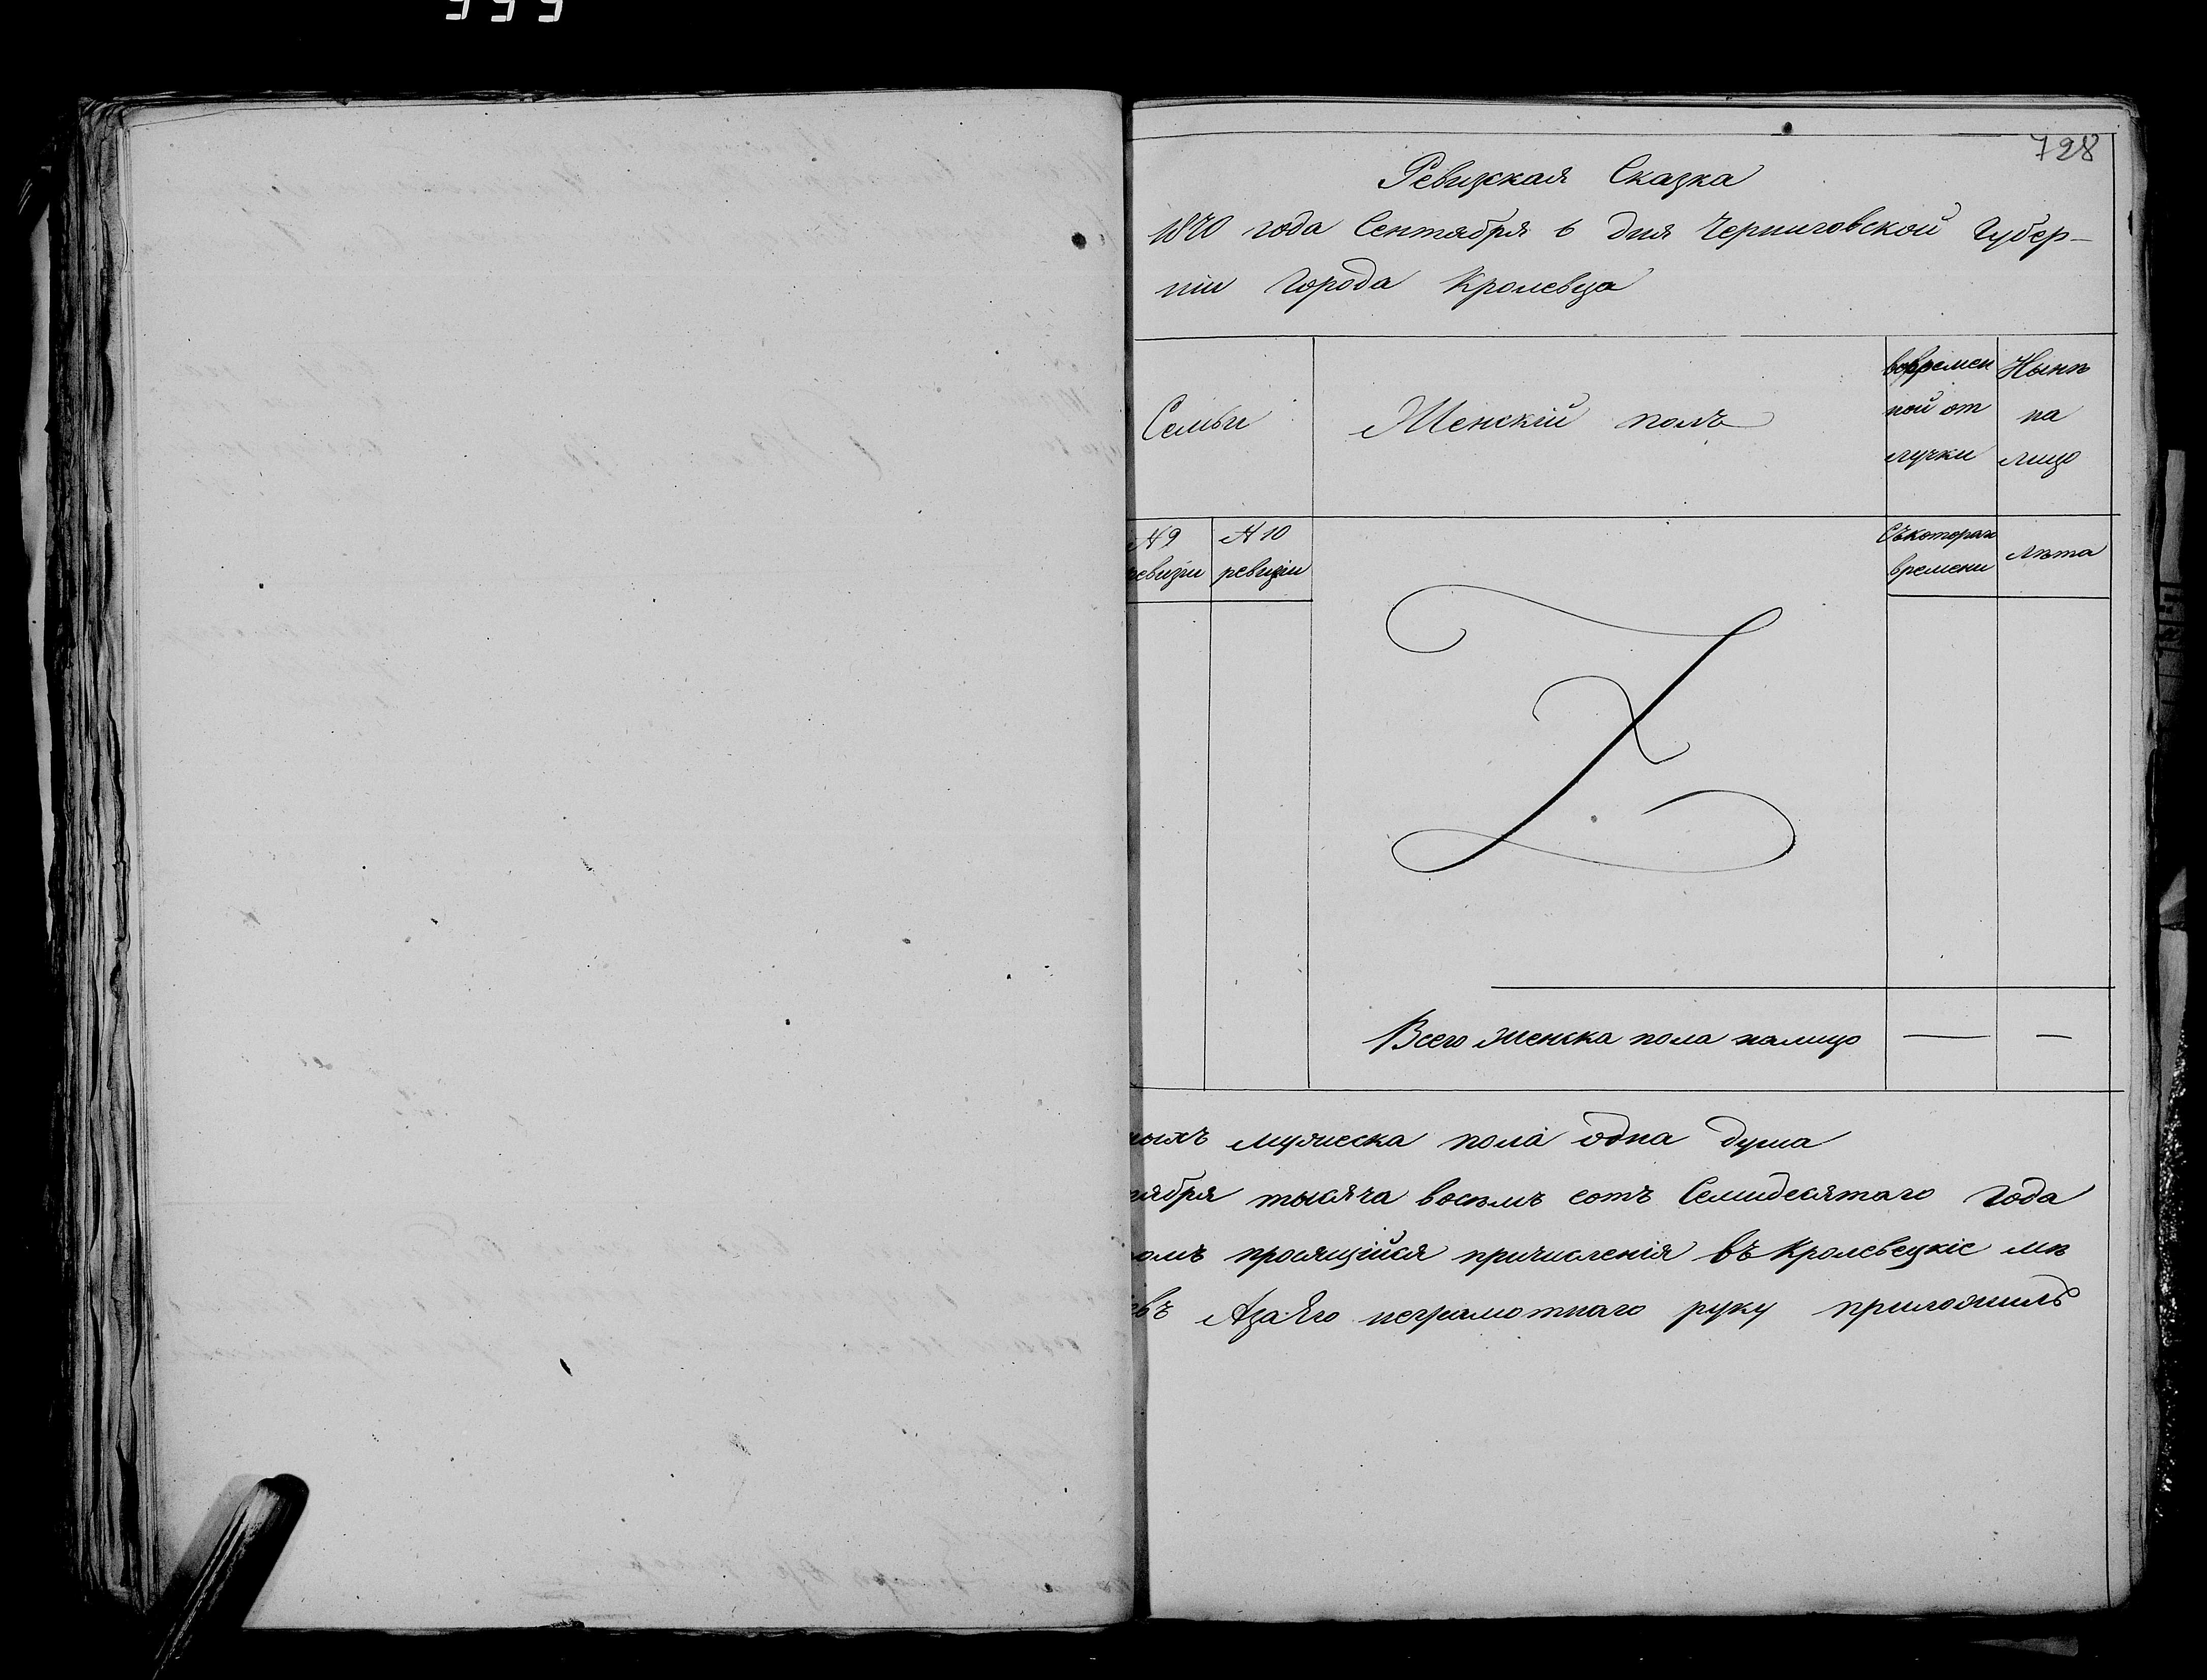 728
Ревизская Сказка
1870 года Сентября 6 дня Черниговской Губер-
ніи Города Кролевца
Семьи
Женскій полъ
вовремен
ной от
лучки
Нынѣ
на
лицо
№ 9
ревизіи
№ 10
ревизіи
Съкотораго
времени
лѣта
Всего женска пола налицо — —
ныхъ мужеска пола одна душа
тября тысяча восемъ сотъ Семидесятаго Года
омъ просящійся причисленія въ Кролевецкіе мѣ
евъ Аза Его неграмотнаго руку приложилъ